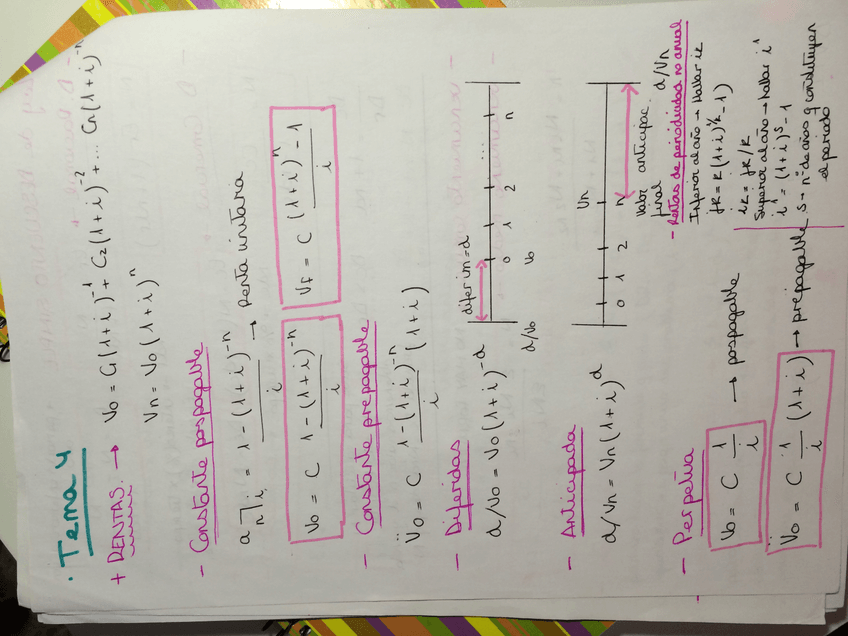 · Tema 4
+ RENTAS. → V0 = C1(1+i)^-1 + C2(1+i)^-2 + ... Cn(1+i)^-n
Vn = V0(1+i)^n
- Constante pospagable
a n̅| i = 1-(1+i)^-n / i → Renta unitaria
V0 = C 1-(1+i)^-n / i
VF = C (1+i)^n - 1 / i
- Constante prepagable
V̈0 = C 1-(1+i)^-n / i (1+i)
- Diferidas
d/V0 = V0(1+i)^-d
diferim=d
0 1 2 ... n
d/V0 V0
- Anticipada
d/Vn = Vn(1+i)^d
Vn
0 1 2 n
Valor anticipac. d/Vn
final
- Perpetua
V0 = C 1/i → pospagable
V̈0 = C 1/i (1+i) → prepagable
- Rentas de periodicidad no anual
Inferior al año → Hallar ik
jk = k(1+i)^1/k - 1)
ik = jk/k
Superior al año → hallar i^1
i^1 = (1+i)^s - 1
s → nº de años q constituyen
el periodo